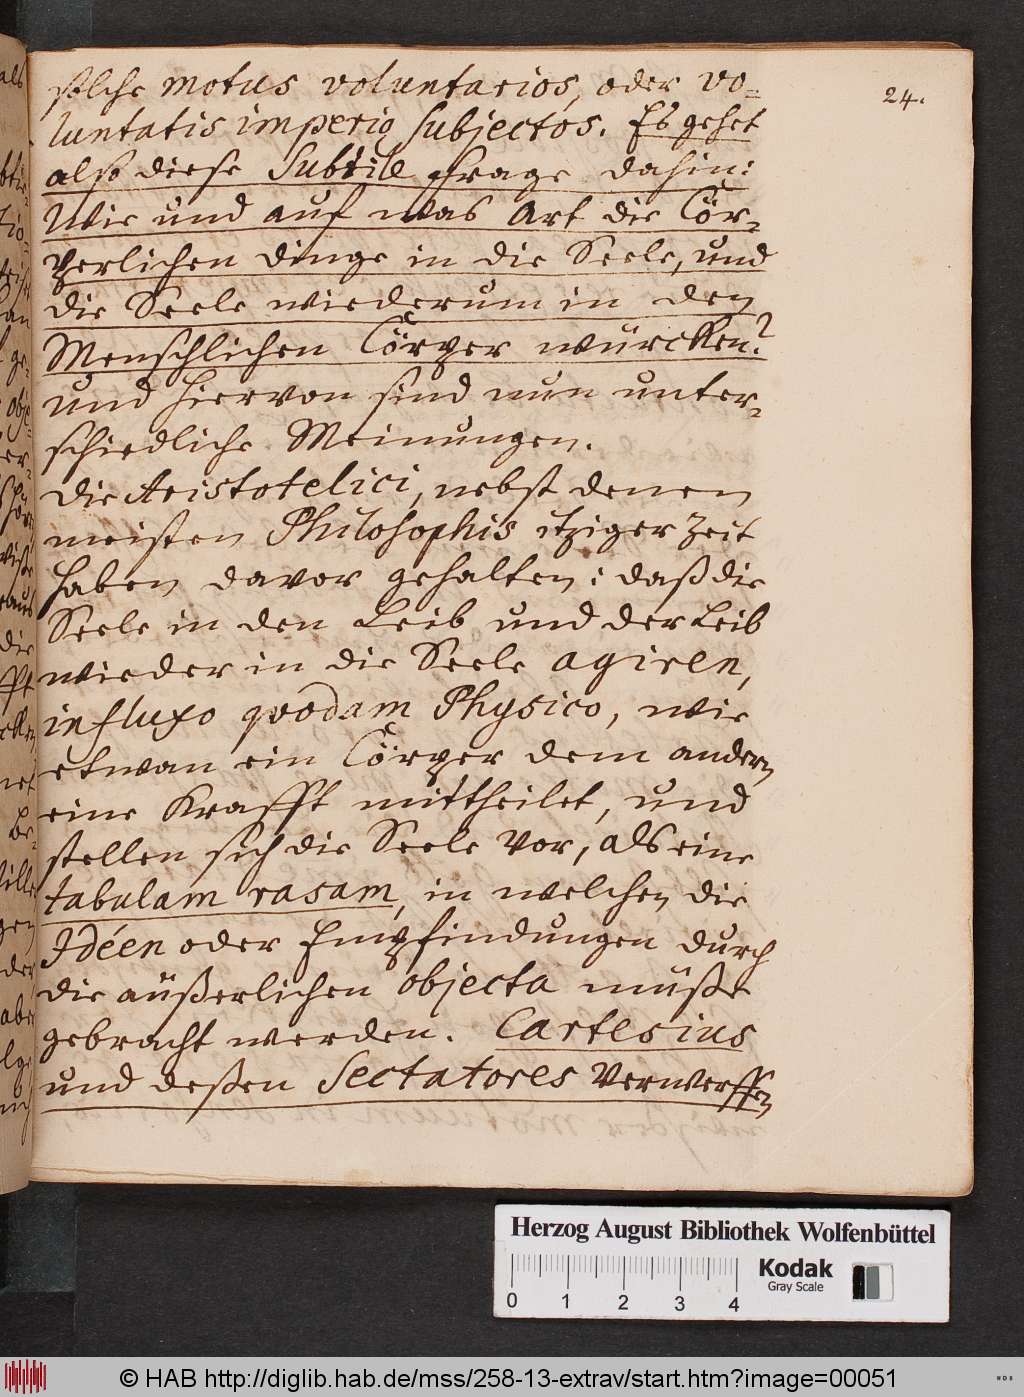 24.
solche motus voluntarios, oder vo=
luntatis imperio subjectos. Es gehet
also diese Subtile Frage dahin:
Wie und auf was Art die Cör=
perlichen dinge in die Seele, und
die Seele wiederum in den
Menschlichen Cörper würcken?
und hiervon sind nun unter=
schiedliche Meinungen.
Die Aristotelici, nebst denen
meisten Philosophis itziger Zeit
haben davor gehalten: daß die
Seele in den Leib und der Leib
wieder in die Seele agiren,
influxo qvodam Physico, wie
etwan ein Cörper dem andern
eine Krafft mittheilet, und
stellen sich die Seele vor, als eine
tabulam rasam, in welchen die
Idéen oder Empfindungen durch
die äüßerlichen objecta müße
gebracht werden. Cartesius
und deßen Sectatores verwerffen
Herzog August Bibliothek Wolfenbüttel
Kodak
Gray Scale
0 1 2 3 4
© HAB http://diglib.hab.de/mss/258-13-extrav/start.htm?image=00051